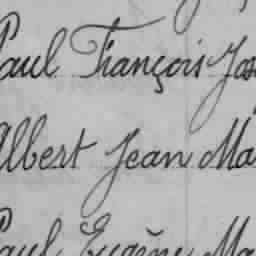 Paul François Jos
Albert Jean Ma
Paul Eugène Ma